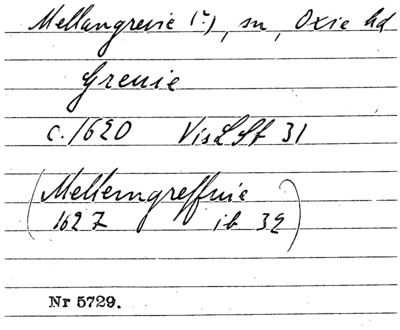 Mellangrevie (?), sn, Oxie hd
Grevie
c. 1620 VisLSt 31
(Mellemgreffuie
1627 ib 32)
Nr 5729.